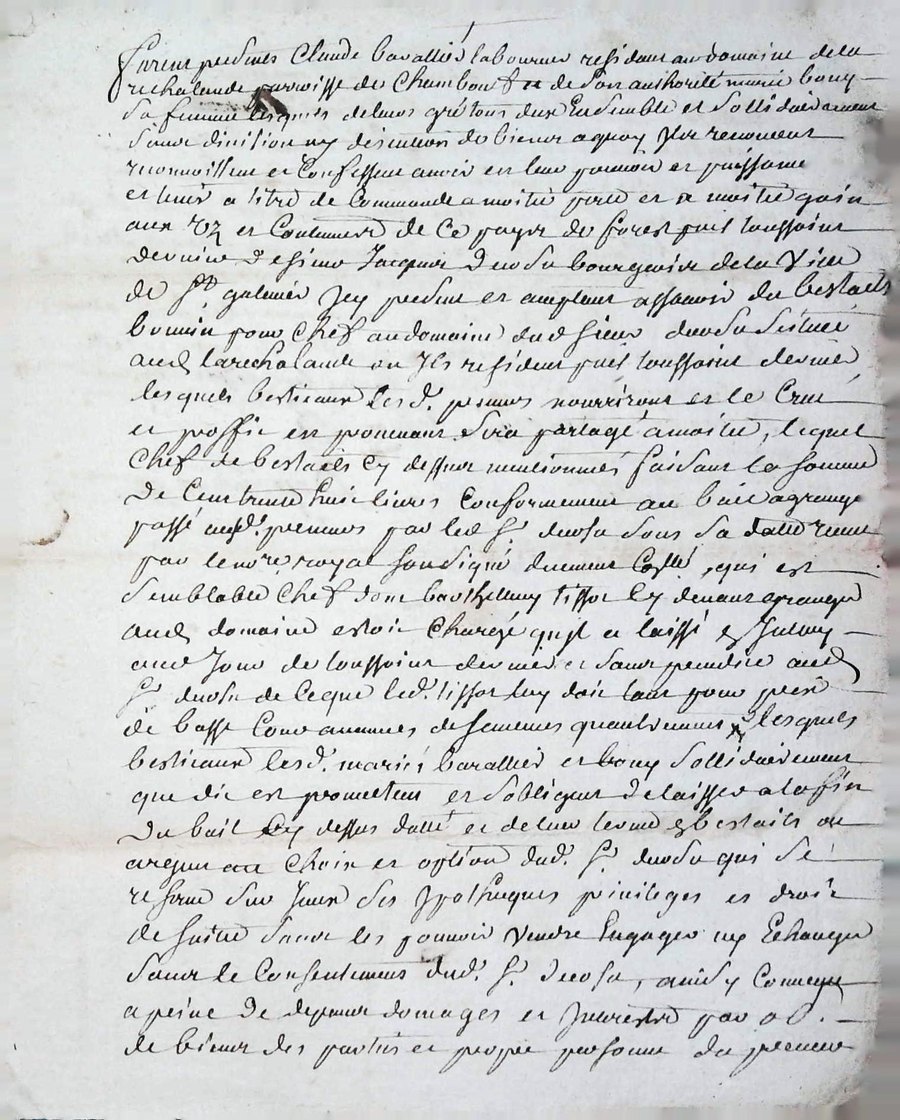 furent presents Claude baralliés laboureur residant au domaine de la
rechalande parroisse de Chambon & de son authorité marie bouy
Sa femme lesquels de leurs grés tous deux Ensemble et Sollidairement
Sans division ny discution de biens a quoy Ils renoncent
reconnoissent et Confessent avoir en leur pouvoir et puissance
et tenir a titre de Commande a moitié perte et a moitié gain
aux et Coutumes de Ce payes de forest puis toussaint
derniere De sieur Jacques Duosu bourgeois de la Ville
de St. galmier Icy present et acceptant assavoir du bestails
bouvin pour Chef au domaine dud sieur duosu Scitué
aud larechalande ou Ils resident puis toussaint dernier
lesquels bestieaux lesd. preneurs nourriront et le Cruë
et proffit en provenant Sera partagé a moitié, lequel
Chef de bestails Cy dessus mentionnés faisant la somme
De Cent trente huit livres Conformement au bail a grange
passé auxd. preneurs par led Sr. duosu Sous Sa datte reçue
par le nore royal Soussigné duement Collé, qui est
Semblable Chef dont barthelemy tissot Cy devant granger
aud domaine estoit Chargé qu'jl a laissé
aud Jour de toussaint dernier et Sans prejudice aud
Sr. duosu de Ceque led. tissot luy doit tant pour prix
de basse Cour avances de semences quautrement lesquels
bestieaux lesd. mariés barallier et bouy Sollidairement
que dit est promettent et Sobligent De laisser a la fin
Du bail Cy dessus datté et de leur tenue bestails ou
argent au Choix et option dud. Sr. duosu qui Se
reserve Sur Iceux Ses Ypotheques privileges et droit
de Suitte Sans les pouvoir Vendre Engager ny Echanger
Sans le Consentement dud. Sr. Duosu, ainsy Convenu
a peine De depens domages et Interests par ob.
de biens des parties et propre personne du preneur